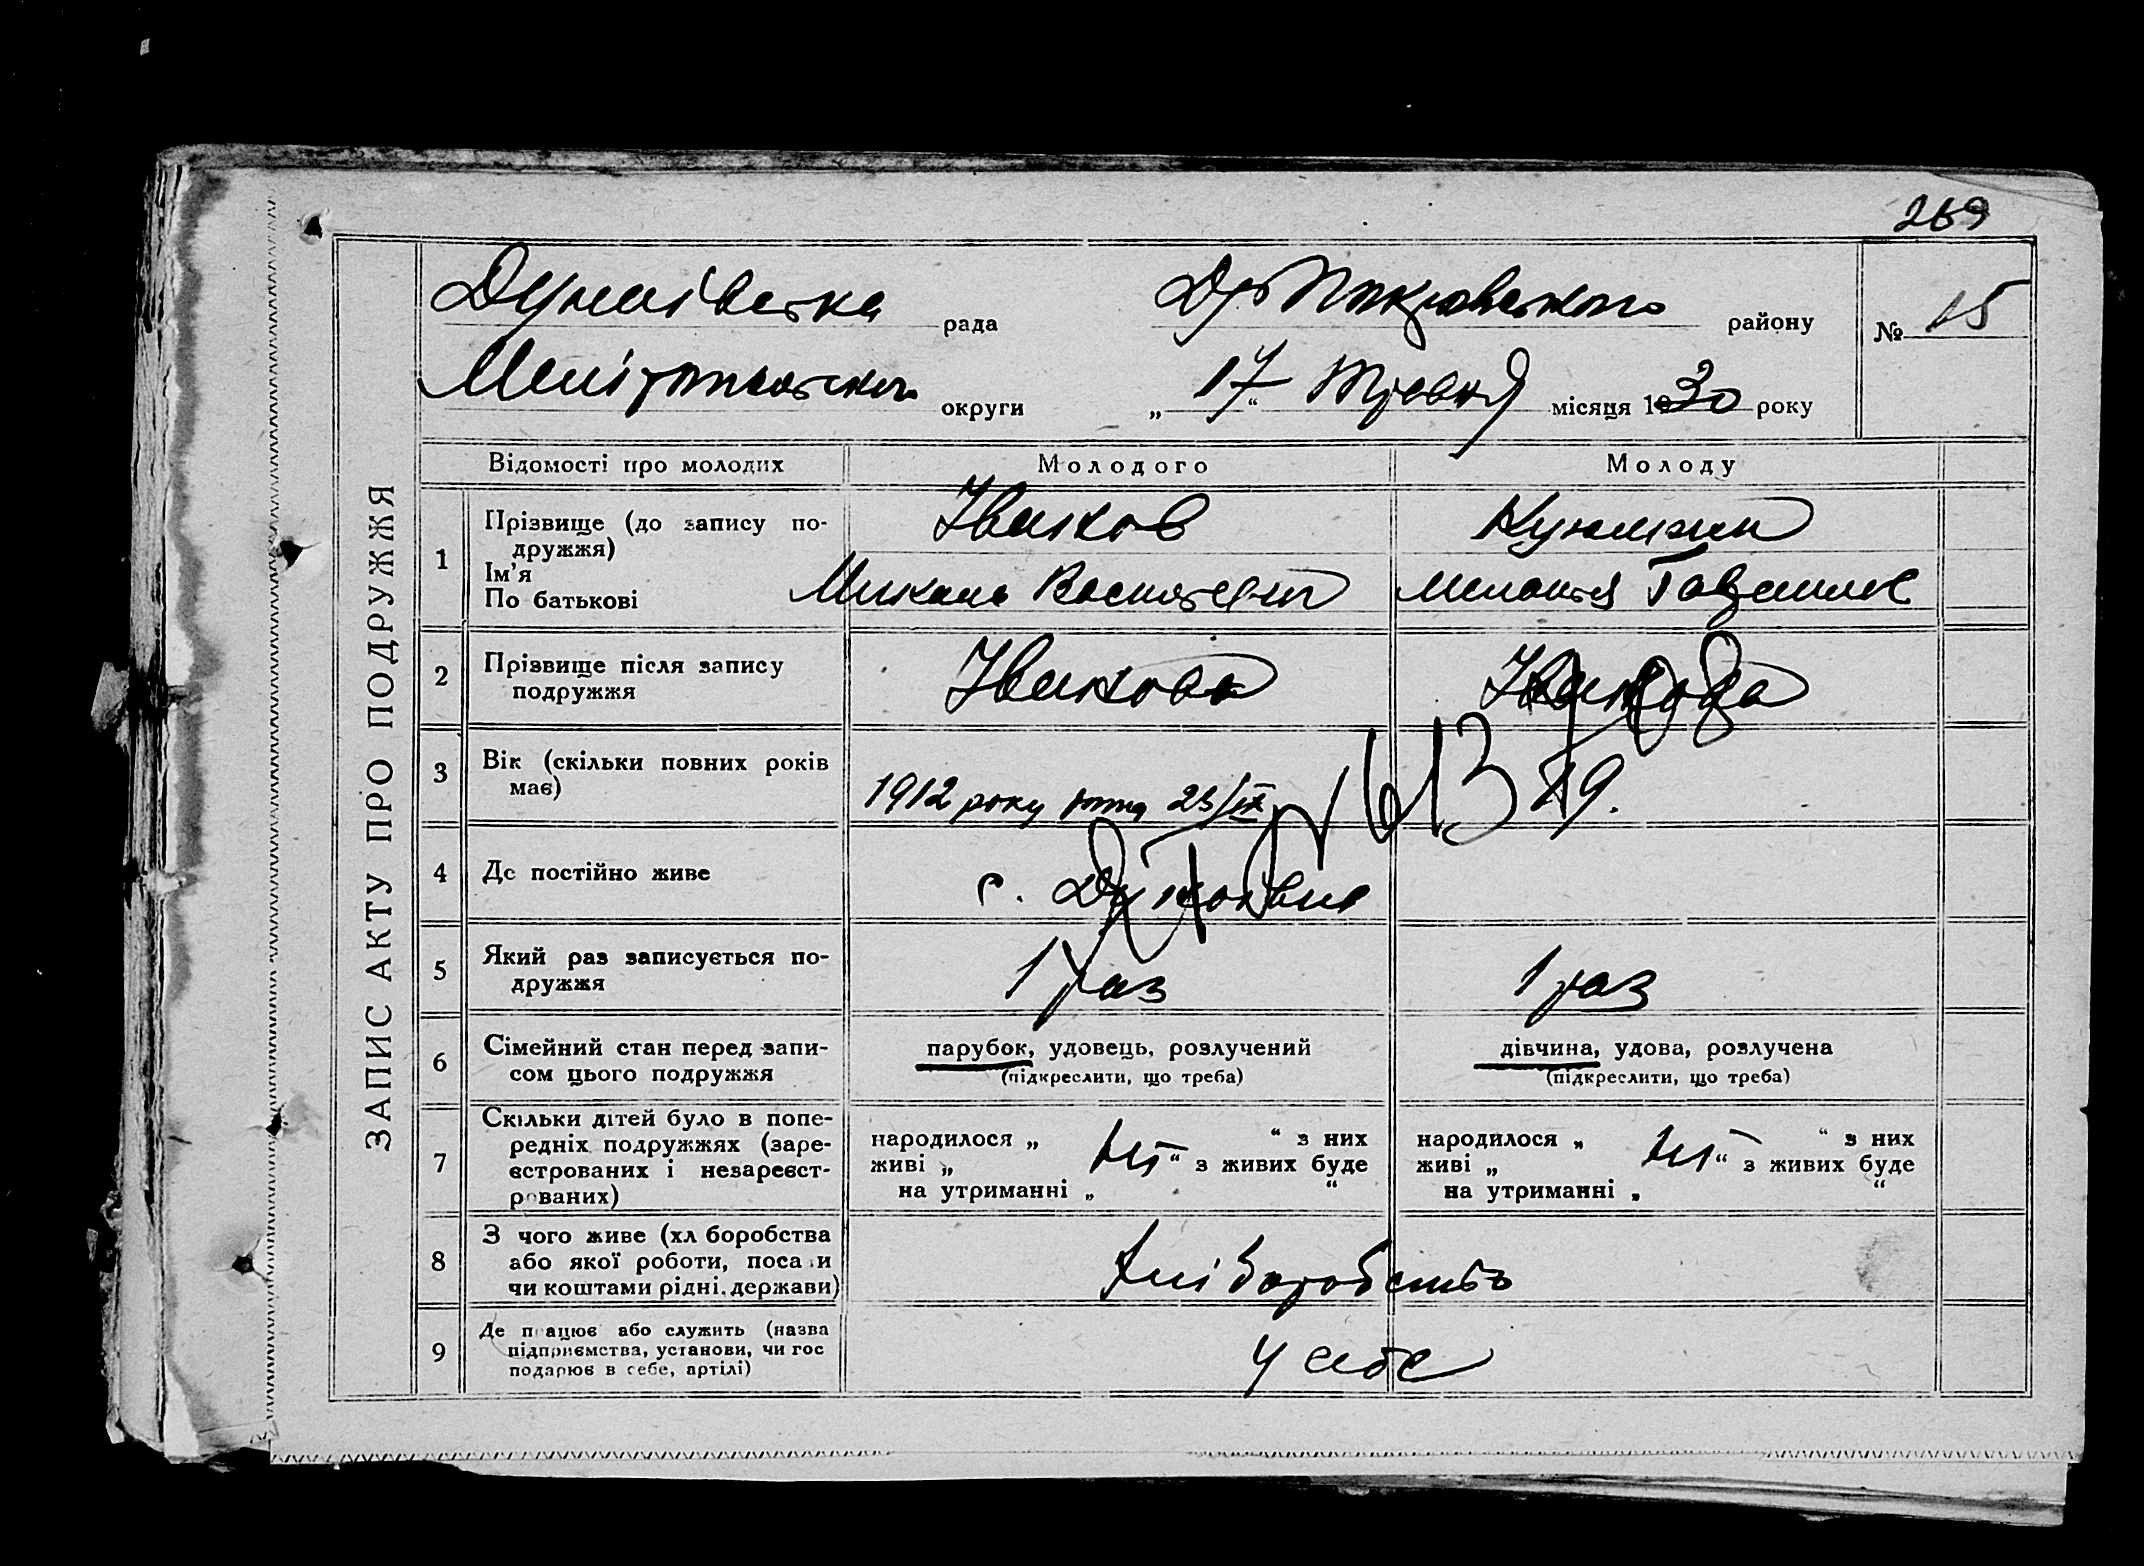 269
Дунаївська рада Др Покровського району № 15
Мелітопольської округи „ 17 “ Травня місяця 1930 року
ЗАПИС АКТУ ПРО ПОДРУЖЖЯ
Відомості про молодих Молодого Молоду
1 Прізвище (до запису по-
дружжя)
Ім’я
По батькові
Іванков
Михаль
Мелания
2 Прізвище після запису
подружжя
Іванкова Іванкова
3 Вік (скільки повних років
має)
1912 року 23/IX 19.
613
4 Де постійно живе
с.
5 Який раз записується по-
дружжя
1 раз 1 раз
6 Сімейний стан перед запи-
сом цього подружжя
парубок, удовець, розлучений
(підкреслити, що треба)
дівчина, удова, розлучена
(підкреслити, що треба)
7 Скільки дітей було в попе-
редніх подружжях (заре-
єстрованих і незареєст-
рованих)
народилося „ “ з них
живі „ ні “ з живих буде
на утриманні „ “
народилося „ “ з них
живі „ ні “ з живих буде
на утриманні „ “
8 З чого живе (хл боробства
або якої роботи, поса и
чи коштами рідні, держави)
хліборобство
9 Де працює або служить (назва
підприємства, установи, чи гос
подарює в себе, артілі)
у себе